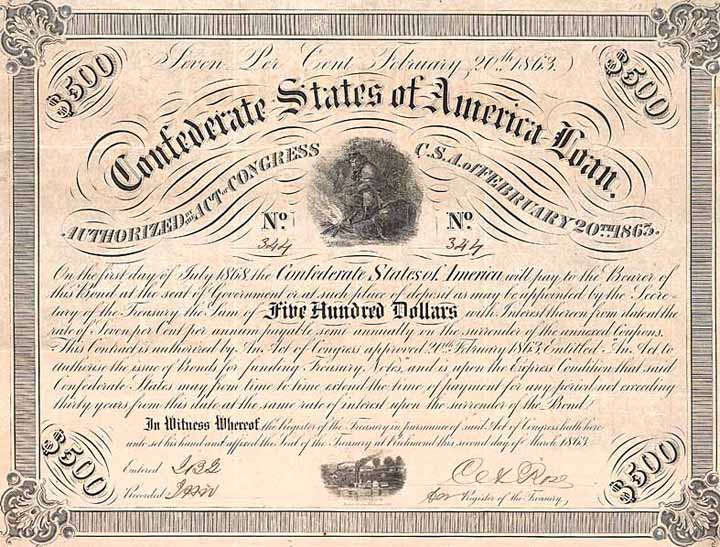 $500
Seven Per Cent February 20th 1863.
$500
Confederate States of America Loan.
AUTHORIZED BY THE ACT OF CONGRESS C.S.A. of FEBRUARY 20TH 1863.
No. No.
344 344
On the first day of July 1868 the Confederate States of America will pay to the Bearer of
this Bond at the seat of Government or at such place of deposit as may be appointed by the Secre-
tary of the Treasury the Sum of Five Hundred Dollars with Interest thereon from date at the
rate of Seven per Cent per annum payable semi annually on the surrender of the annexed Coupons.
This Contract is authorized by An Act of Congress approved 20th February 1863, Entitled "An Act to
authorise the issue of Bonds for funding Treasury Notes, and is upon the Express Condition that said
Confederate States may from time to time extend the time of payment for any period not exceeding
thirty years from this date at the same rate of interest upon the surrender of the Bond.
In Witness Whereof the Register of the Treasury in pursuance of said Act of Congress hath here
unto set his hand and affixed the Seal of the Treasury at Richmond this second day of March 1863
$500
Entered
Recorded
C A Rose
for Register of the Treasury,
$500